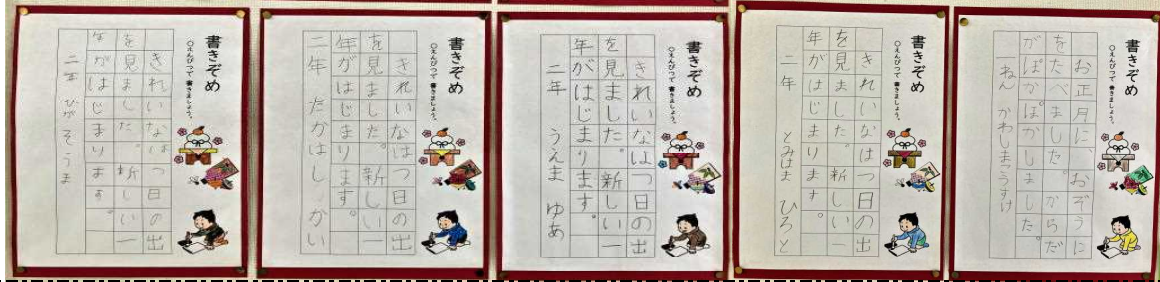 書きぞめ
○えんぴつで書きましょう。
きれいなはつ日の出
を見ました。新しい一
年がはじまります。
二年 ひが そうま
書きぞめ
○えんぴつで書きましょう。
きれいなはつ日の出
を見ました。新しい一
年がはじまります。
二年 たかはし かい
書きぞめ
○えんぴつで書きましょう。
きれいなはつ日の出
を見ました。新しい一
年がはじまります。
二年 うんま ゆあ
書きぞめ
○えんぴつで書きましょう。
きれいなはつ日の出
を見ました。新しい一
年がはじまります。
二年 とみはま ひろと
書きぞめ
○えんぴつで書きましょう。
お正月に、おぞうに
をたべました。からだ
がぽかぽかしました。
ねん かわしま